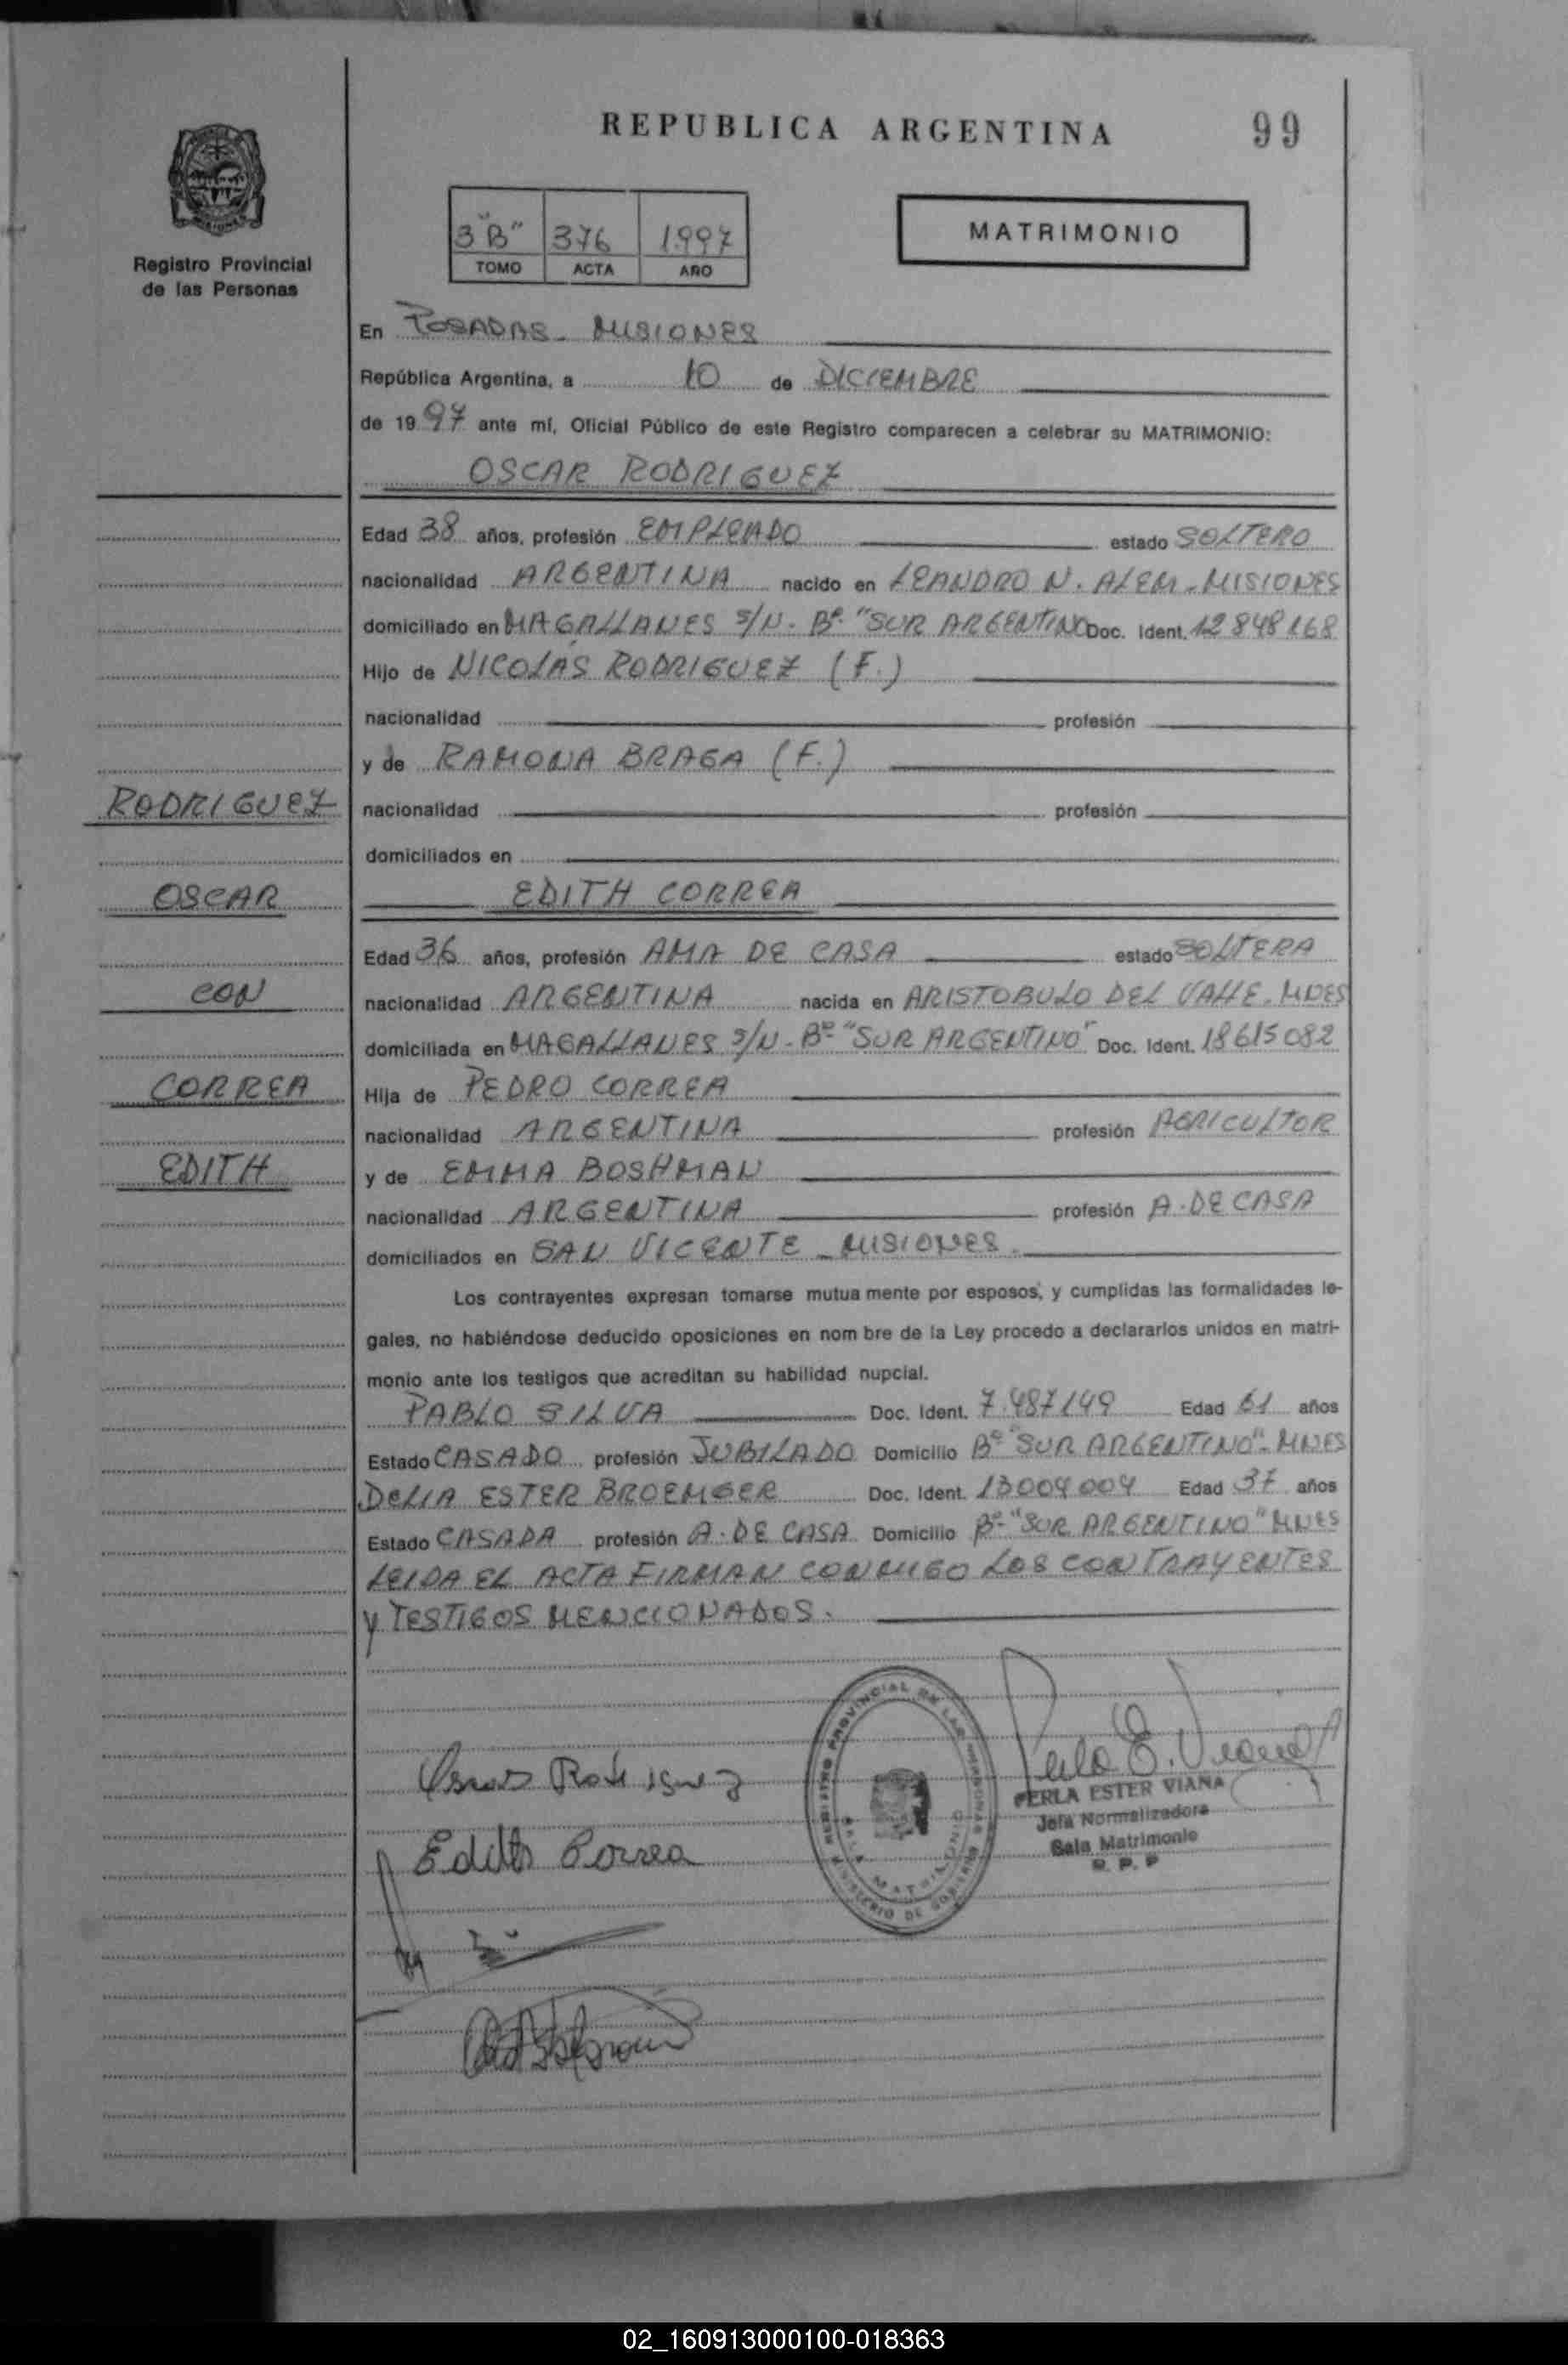 REPUBLICA ARGENTINA
99
Registro Provincial
de las Personas
3 "B" 376 1997
TOMO ACTA AÑO
MATRIMONIO
En POSADAS - MISIONES
República Argentina, a 10 de DICIEMBRE
de 19 97 ante mí, Oficial Público de este Registro comparecen a celebrar su MATRIMONIO:
OSCAR RODRIGUEZ
Edad 38 años, profesión EMPLEADO estado SOLTERO
nacionalidad ARGENTINA nacido en LEANDRO N. ALEM - MISIONES
domiciliado en MAGALLANES S/N - Bº "SUR ARGENTINO Doc. Ident. 12848168
Hijo de NICOLÁS RODRIGUEZ (F.)
nacionalidad profesión
y de RAMONA BRAGA (F.)
nacionalidad profesión
domiciliados en
EDITH CORREA
Edad 36 años, profesión AMA DE CASA estado SOLTERA
nacionalidad ARGENTINA nacida en ARISTOBULO DEL VALLE - MNES
domiciliada en MAGALLANES S/N - Bº "SUR ARGENTINO" Doc. Ident. 18615082
Hija de PEDRO CORREA
nacionalidad ARGENTINA profesión AGRICULTOR
y de EMMA BOSHMAN
nacionalidad ARGENTINA profesión A. DE CASA
domiciliados en SAN VICENTE - MISIONES.
RODRIGUEZ
OSCAR
CON
CORREA
EDITH
Los contrayentes expresan tomarse mutua mente por esposos, y cumplidas las formalidades le-
gales, no habiéndose deducido oposiciones en nom bre de la Ley procedo a declararlos unidos en matri-
monio ante los testigos que acreditan su habilidad nupcial.
PABLO SILVA Doc. Ident. 7.487149 Edad 61 años
Estado CASADO profesión JUBILADO Domicilio Bº "SUR ARGENTINO" - MNES
DELIA ESTER BROEMSER Doc. Ident. 13004004 Edad 37 años
Estado CASADA profesión A. DE CASA Domicilio Bº "SUR ARGENTINO" MNES
LEIDA EL ACTA FIRMAN CONMIGO LOS CONTRAYENTES
Y TESTIGOS MENCIONADOS.
Oscar Rodriguez
Edith Correa
REGISTRO PROVINCIAL DE LAS PERSONAS
SALA MATRIMONIO
MINISTERIO DE GOBIERNO
Perla E. Viana
PERLA ESTER VIANA
Jefa Normalizadora
Sala Matrimonio
R. P. P
02_160913000100-018363